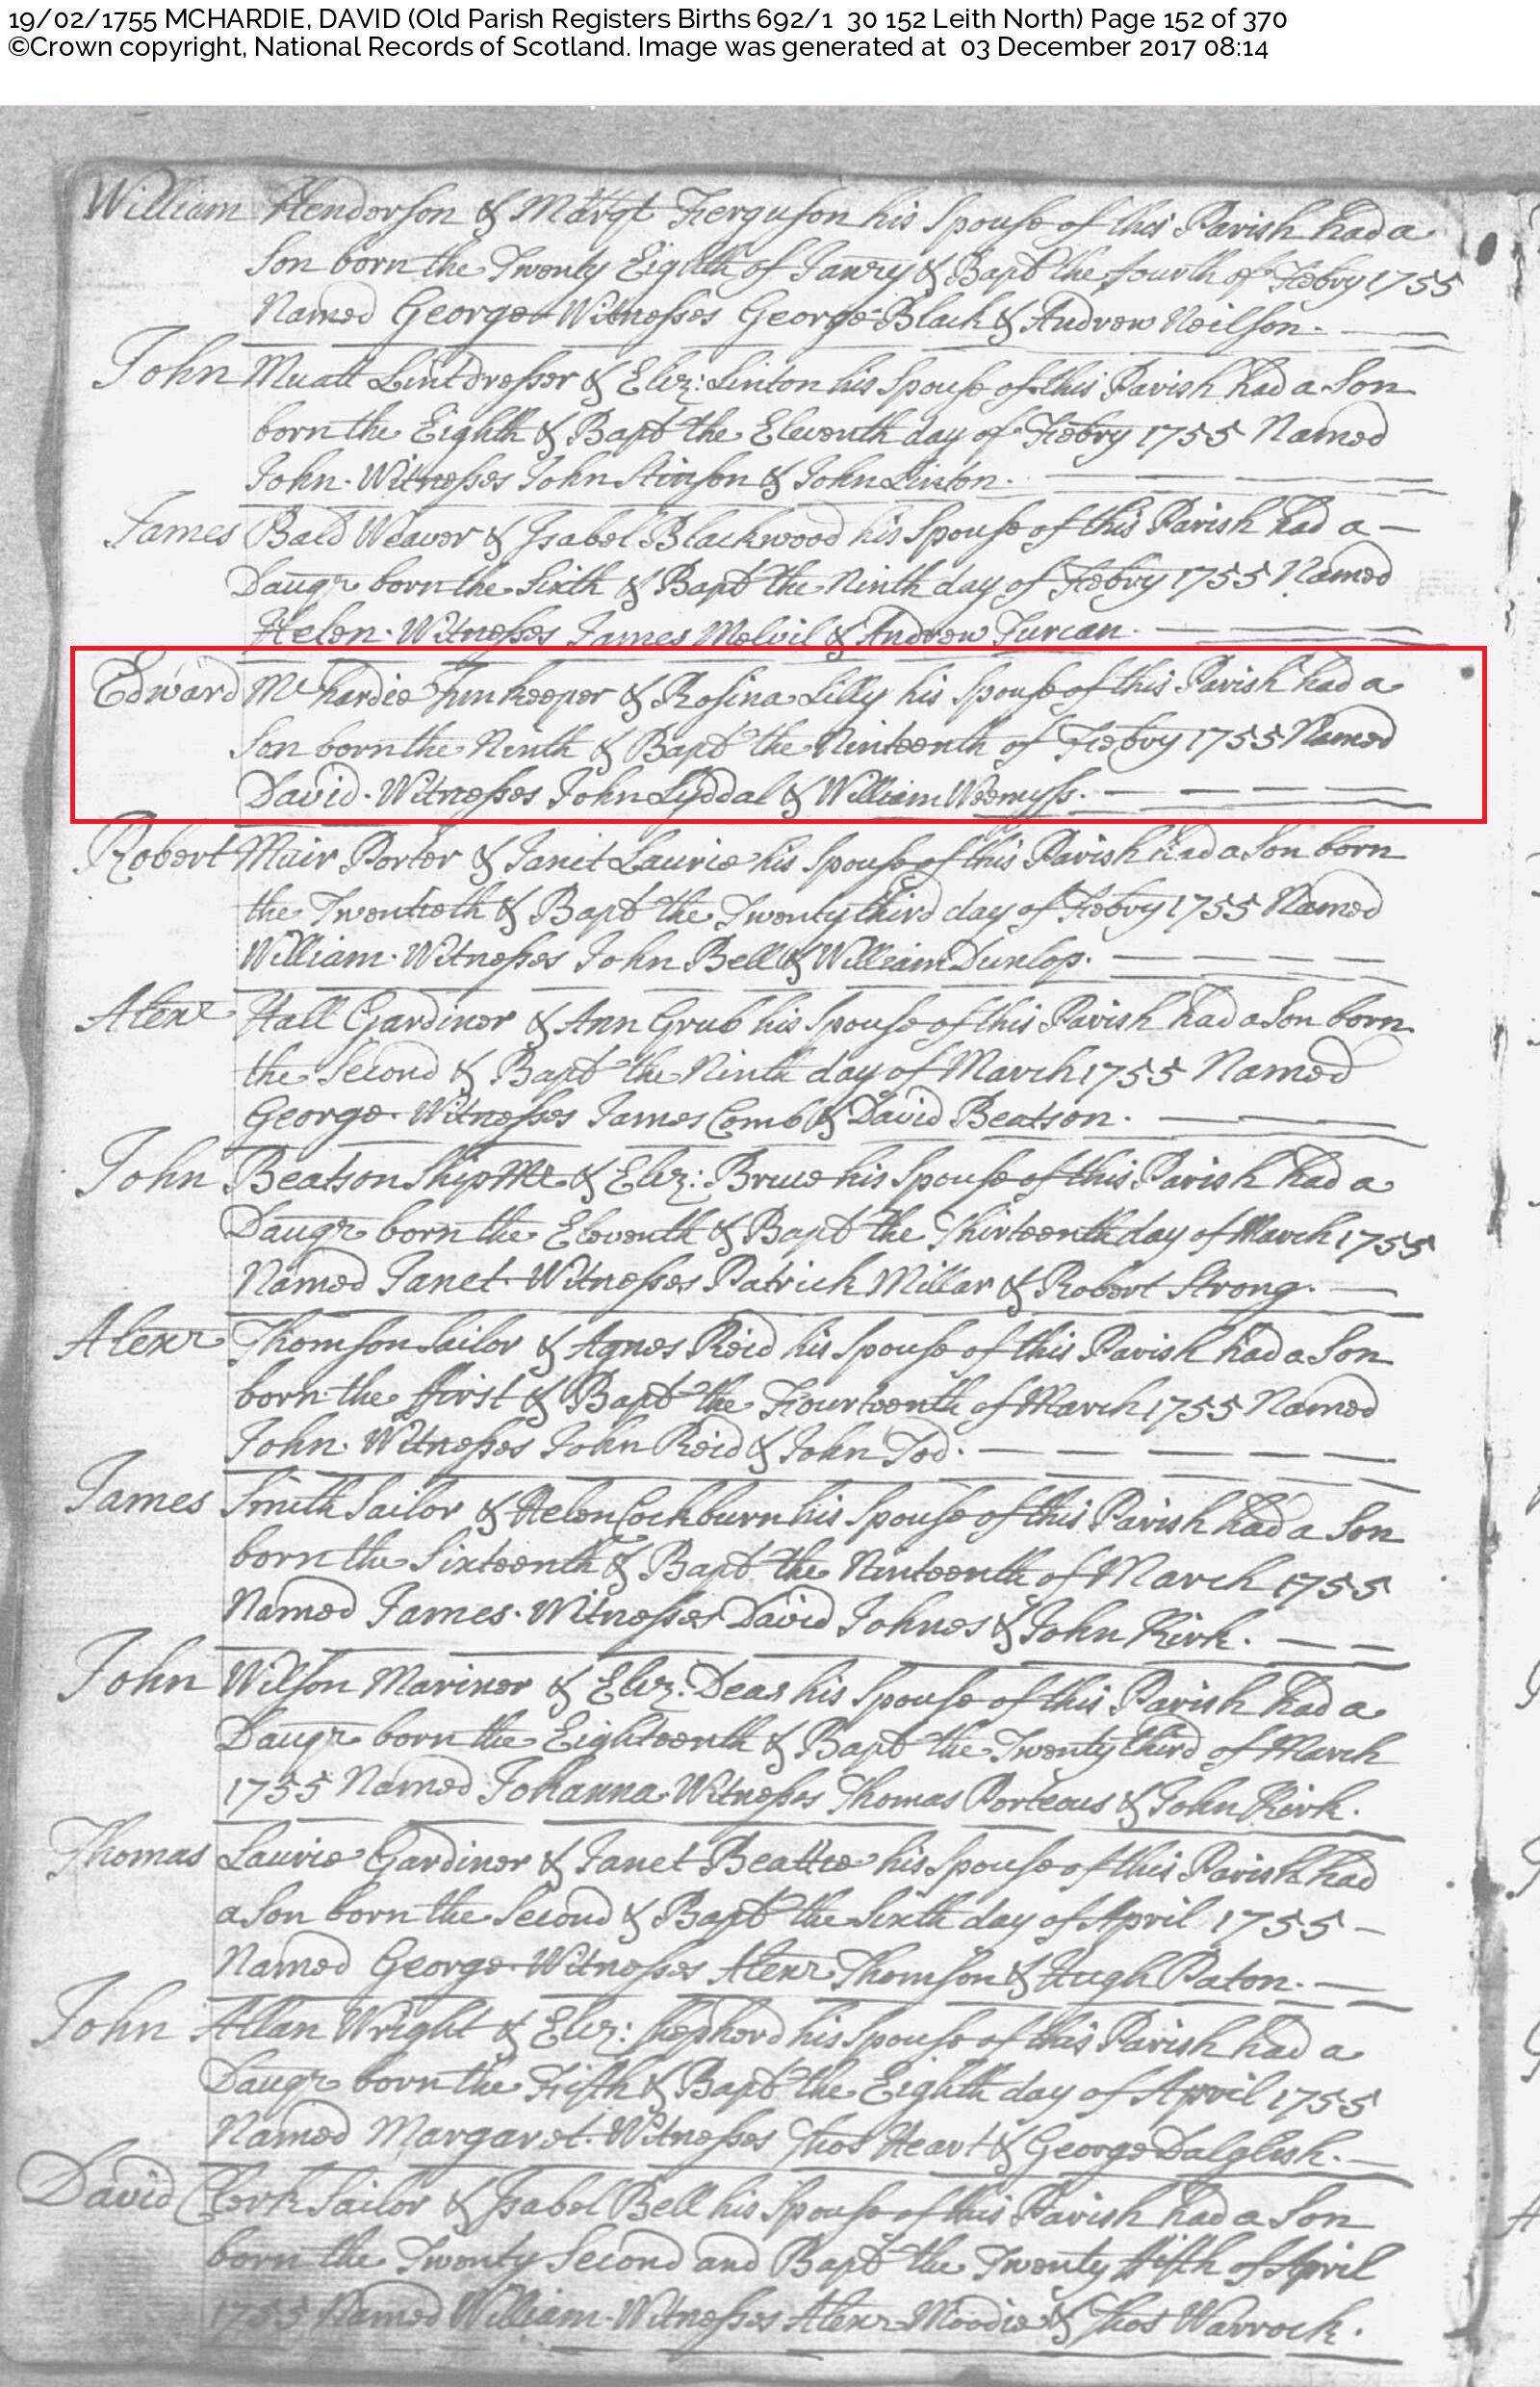 19/02/1755 MCHARDIE, DAVID (Old Parish Registers Births 692/1 30 152 Leith North) Page 152 of 370
©Crown copyright, National Records of Scotland. Image was generated at 03 December 2017 08:14
William Henderson & Margt Ferguson his Spouse of this Parish had a
Son born the Twenty Eighth of Janry & Bapt the fourth of Febry 1755
Named George Witnesses George Black & Andrew Neilson.
John Muatt Lintdresser & Eliz: Linton his Spouse of this Parish had a Son
born the Eighth & Bapt the Eleventh day of Febry 1755 Named
John. Witnesses John Stinson & John Linton.
James Bald Weaver & Isabel Blackwood his Spouse of this Parish had a
Daugr born the Sixth & Bapt the Ninth day of Febry 1755 Named
Helen. Witnesses James Melvil & Andrew Turcan.
Edward Mchardie Innkeeper & Rosina Lilly his Spouse of this Parish had a
Son born the Ninth & Bapt the Ninteenth of Febry 1755 Named
David. Witnesses John Lyddal & William Weemyss.
Robert Muir Porter & Janet Laurie his Spouse of this Parish had a Son born
the Twentieth & Bapt the Twenty third day of Febry 1755 Named
William. Witnesses John Bell & William Dunlop.
Alexr Hall Gardiner & Ann Grub his Spouse of this Parish had a Son born
the Second & Bapt the Ninth day of March 1755 Named
George. Witnesses James Comb & David Beatson.
John Beatson Ship Mr & Eliz: Bruce his Spouse of this Parish had a
Daugr born the Eleventh & Bapt the Thirteenth day of March 1755
Named Janet. Witnesses Patrick Millar & Robert Strong.
Alexr Thomson Sailor & Agnes Reid his Spouse of this Parish had a Son
born the first & Bapt the Fourteenth of March 1755 Named
John. Witnesses John Reid & John Tod.
James Smith Sailor & Helen Cockburn his Spouse of this Parish had a Son
born the Sixteenth & Bapt the Ninteenth of March 1755
Named James. Witnesses David Johnes & John Kirk.
John Wilson Mariner & Eliz: Deas his Spouse of this Parish had a
Daugr born the Eighteenth & Bapt the Twenty third of March
1755 Named Johanna. Witnesses Thomas Porteous & John Kirk.
Thomas Laurie Gardiner & Janet Beattie his Spouse of this Parish had
a Son born the Second & Bapt the Sixth day of April 1755
Named George. Witnesses Alexr Thomson & Hugh Paton.
John Allan Wright & Eliz: Shepherd his Spouse of this Parish had a
Daugr born the Fifth & Bapt the Eighth day of April 1755
Named Margaret. Witnesses Thos Heart & George Dalglish.
David Clerk Sailor & Isabel Bell his Spouse of this Parish had a Son
born the Twenty Second and Bapt the Twenty fifth of April
1755 Named William. Witnesses Alexr Moodie & Thos Warrock.